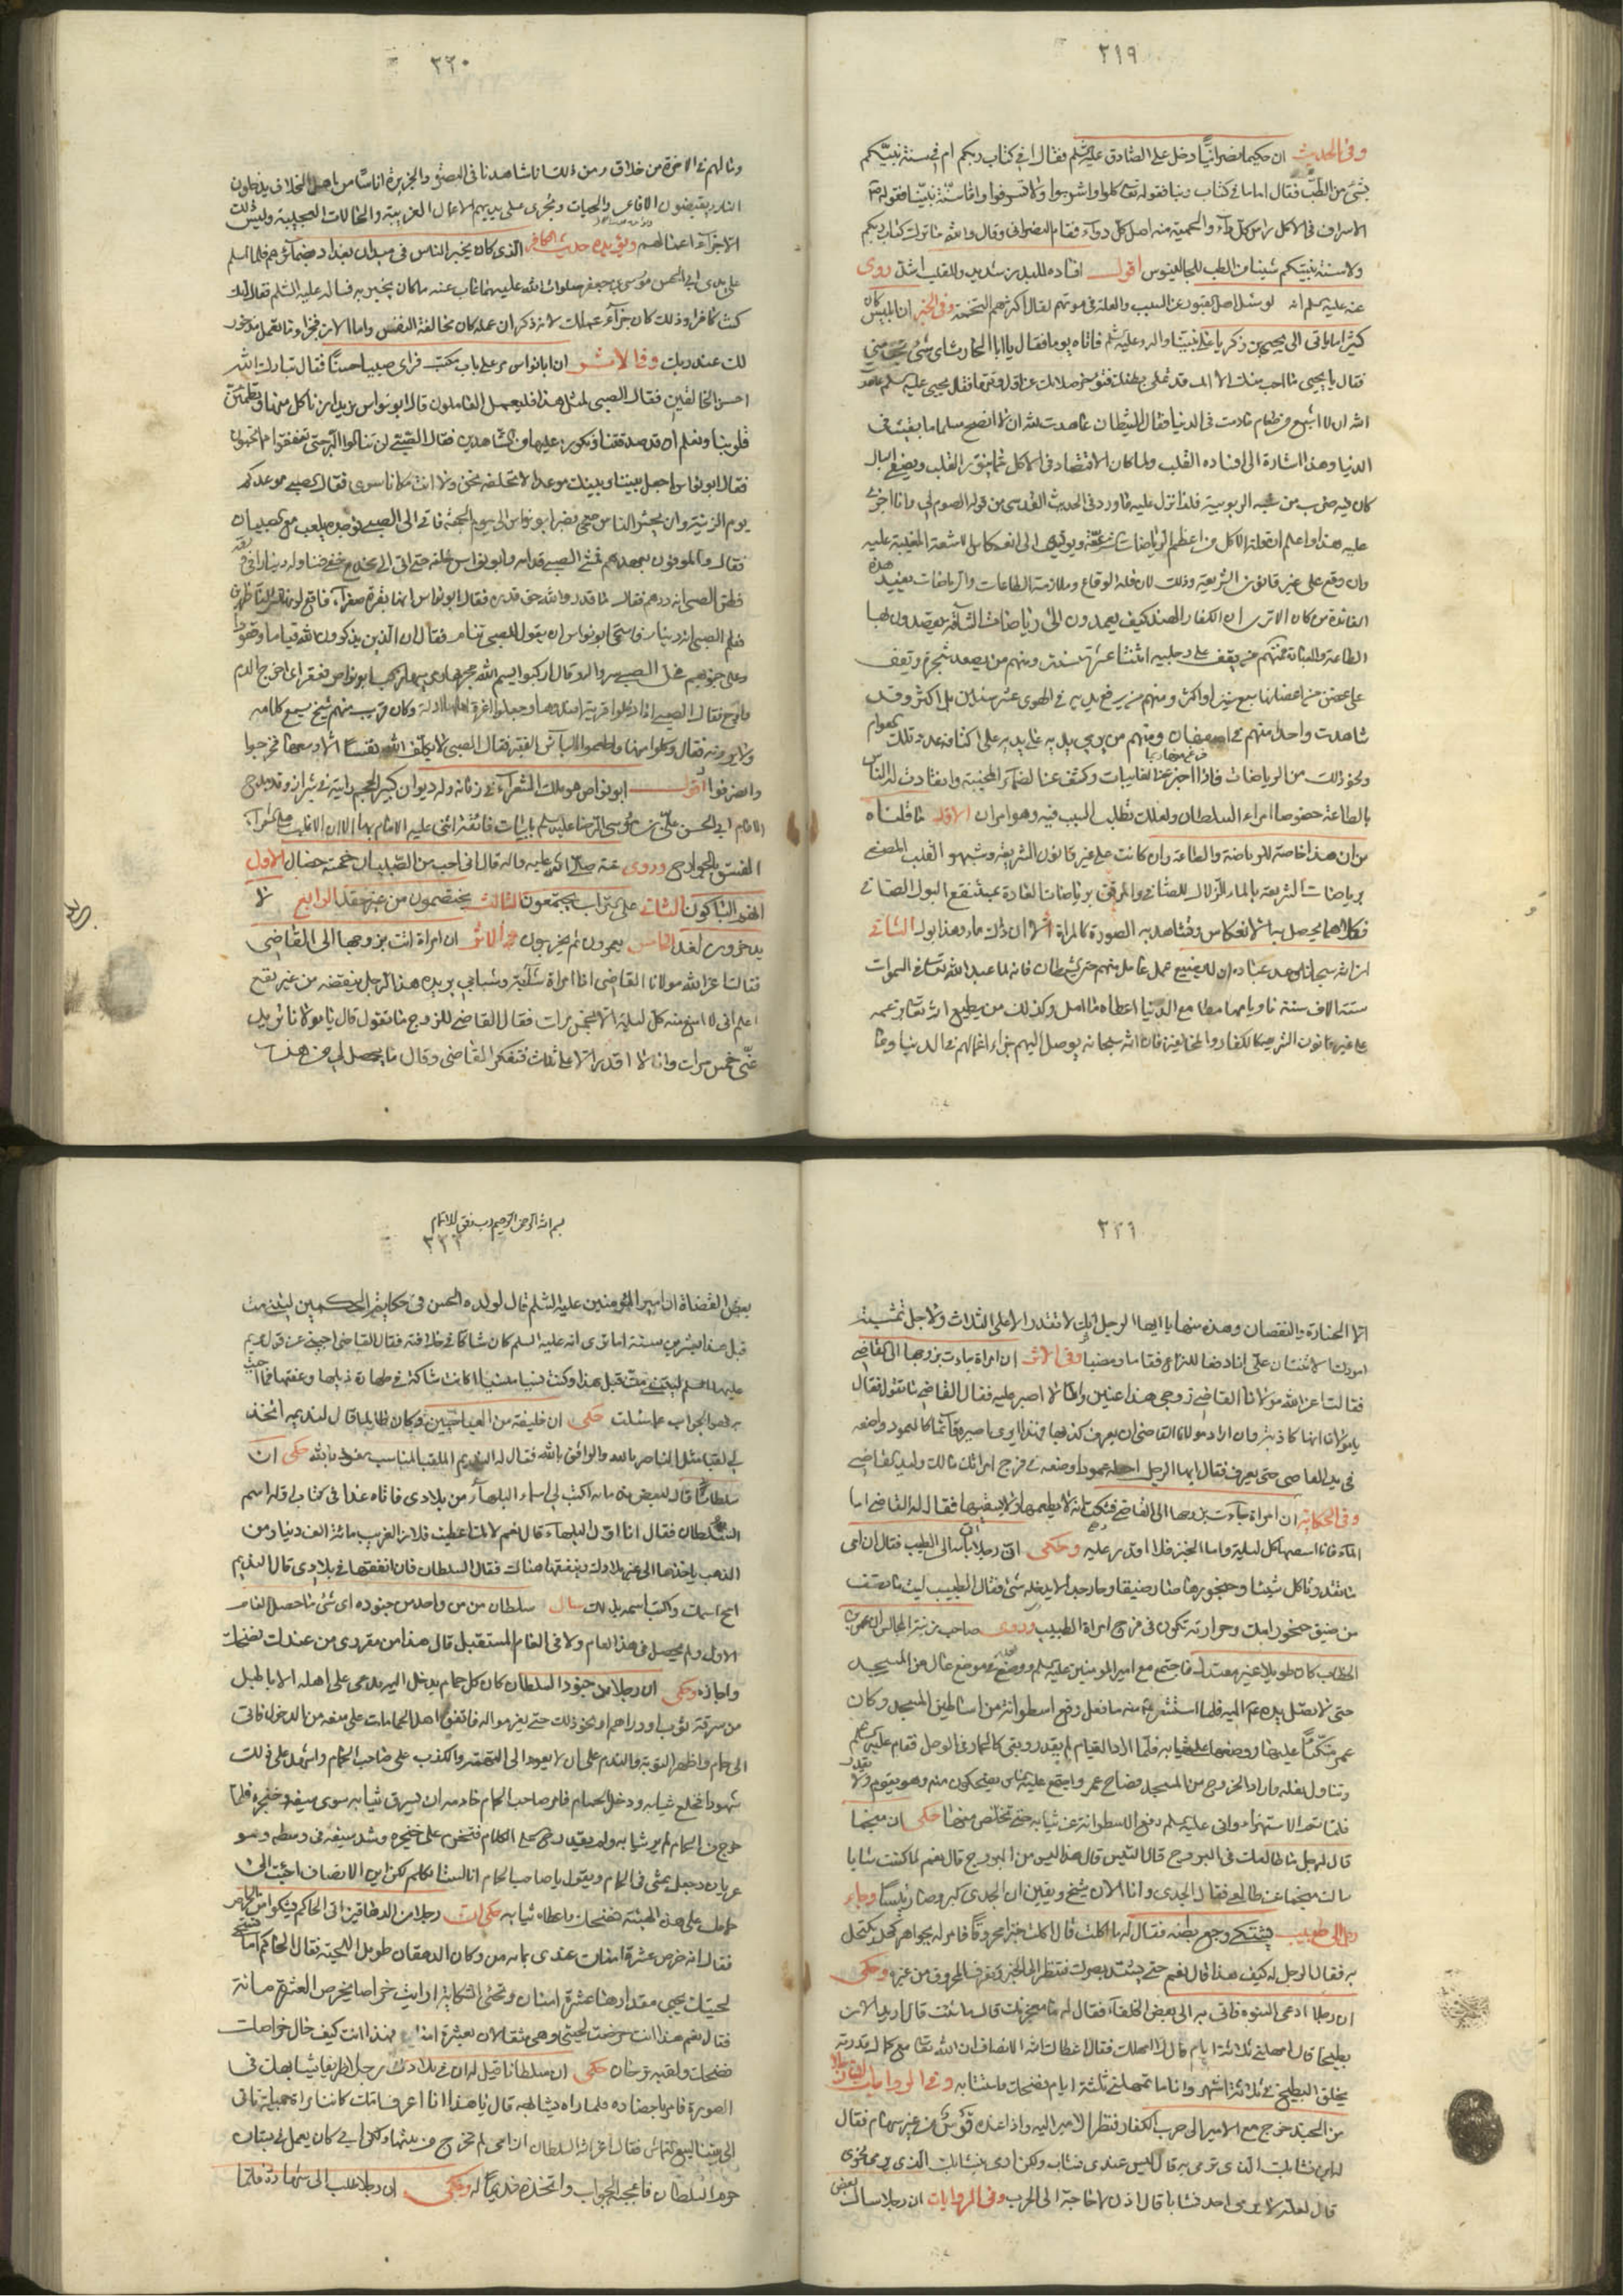 ٣١٩
وفى الحديث ان حكيما نصرانيا دخل على الصادق عليه السلم فقال افى كتاب ربكم ام فى سنة نبيكم
بشئ من الطب فقال اما ما فى كتاب ربنا فقوله تعالى كلوا واشربوا ولا تسرفوا واما سنة نبينا فقوله ص
الاسراف فى الاكل راس كل داء والحمية منه اصل كل دواء فقام النصرانى وقال والله ما ترك كتاب ربكم
ولا سنة نبيكم شيئا من الطب لجالينوس اقول افساده للبدن شديد وللقلب اشد روى
عنه عليه سلم انه لو سئل اهل القبور عن السبب والعلة فى موتهم لقال اكثرهم التخمة وفى الخبر ان ابليس كان
كثيرا ما ياتى الى يحيى بن زكريا على نبينا واله وعليه سلم فاتاه يوما فقال يا ابا الحارث اى شئ
فقال يا يحيى ما احب منك الا انك قد تملى بطنك فتؤخر صلاتك عن اول وقتها فقال يحيى عليه سلم عاهدت
الله ان لا اشبع من طعام ما دمت فى الدنيا فقال الشيطان عاهدت الله ان لا انصح مسلما ما بقيت فى
الدنيا وهذا اشارة الى افساده القلب ولما كان الاقتصاد فى الاكل مما ينور القلب ويضئ
كان فيه ضرب من شبه الربوبية فلذا نزل عليه ما ورد فى الحديث القدسى من قوله الصوم لى وانا اجزى
عليه هذا واعلم ان قلة الاكل من اعظم الرياضات ويؤدى الى انعكاس الاشعة الغيبية عليه
وان وقع على غير قانون الشريعة وذلك لان قلة الوقاع وملازمة الطاعات والرياضات يفيد هذه
الفائدة من كان الا ترى ان الكفار الهند كيف يعمدون الى رياضات الشاقة يقصدون بها
الطاعة والعبادة فمنهم من يقف على رجليه اثنتا عشرة سنة ومنهم من يصعد شجرة ويقف
على غصن من اغصانها سبع سنين او اكثر ومنهم من يرفع يديه فى الهوى عشر سنين بل اكثر وقد
شاهدت واحدا منهم فى اصفهان ومنهم من يربى يديه على اكتافه
ونحو ذلك من الرياضات فاذا اخبر عن الغايبات وكشف عن الضماير الخفية وانقادت له الناس
بالطاعة خصوصا امراء السلطان ولعلك تطلب السبب فيه وهو امران الاول ما قلناه
من ان هذا خاصة للرياضة والطاعة وان كانت على غير قانون الشريعة وشبهوا القلب المصفى
برياضات الشريعة بالماء الزلال الصافى برياضات العادة بمستنقع البول الصافى
فكلاهما يحصل به الانعكاس وتشاهد به الصورة كالمراة الا ان ذلك ماء وهذا بول الثانى
ان الله سبحانه وعد عباده ان لا يضيع عمل عامل منهم حتى الشيطان فانه لما عبد الله تعالى فى السموات
ستة الاف سنة ناويا بها مطامع الدنيا اعطاه ما امل وكذلك من يطيع الله تعالى بزعمه
على غير قانون الشرع كالكفار والمخالفين فان الله سبحانه يوصل اليهم جزاء اعمالهم فى الدنيا وما
٣٢٠
وما لهم فى الاخرة من خلاق ومن ذلك انا شاهدنا فى البصرة والجزيرة اناسا من اهل الخلاف يدخلون
النار ويقبضون الافاعى والحيات ويجرى على يديهم الاعمال الغريبة والحالات العجيبة وليس ذلك
الا جزاء اعمالهم ويؤيده حديث الكافر الذى كان يخبر الناس فى ميدان بغداد بضمائرهم فلما اسلم
على يدى ابى الحسن موسى بن جعفر صلوات الله عليهما غاب عنه ما كان يخبر به فساله عليه السلم فقال انك
كنت كافرا وذلك كان جزاء عملك لانه ذكر ان عمله كان مخالفة النفس واما الان فجزاء ما تعمل مذخور
لك عند ربك وفى الاثر ان ابا نواس مر على باب مكتب فراى صبيا حسنا فقال تبارك الله
احسن الخالقين فقال الصبى لمثل هذا فليعمل العاملون قال ابو نواس نريد ان ناكل منها وتطمئن
قلوبنا ونعلم ان قد صدقتنا ونكون عليها من الشاهدين فقال الصبى لن تنالوا البر حتى تنفقوا مما تحبون
فقال ابو نواس اجعل بيننا وبينك موعدا لا نخلفه نحن ولا انت مكانا سوى فقال الصبى موعدكم
يوم الزينة وان يحشر الناس ضحى فصبر ابو نواس الى يوم الجمعة فاتى الى الصبى فوجده يلعب مع الصبيان
فقال والموفون بعهدهم فمشى الصبى قدامه وابو نواس خلفه حتى اتى الى
فظن الصبى انه درهم فقال ما قدروا الله حق قدره فقال ابو نواس انها بقرة صفراء فاقع لونها تسر الناظرين
فعلم الصبى انه دينار واستحى ابو نواس ان يقول للصبى تنام فقال ان الذين يذكرون الله قياما وقعودا
وعلى جنوبهم فحل الصبى سرواله وقال اركبوا بسم الله مجريها ومرسيها فركب ابو نواس
فاوجع فقال الصبى ان الملوك اذا دخلوا قرية افسدوها وجعلوا اعزة اهلها اذلة وكان قريب منهم شيخ يسمع كلامهم
ولا يرونه فقال وكلوا منها واطعموا البائس الفقير فقال الصبى لا يكلف الله نفسا الا وسعها فخرجوا
وانصرفوا اقول ابو نواس هو ملك الشعراء فى زمانه وله ديوان كبير الحجم رايته فى شيراز وقد مدح
الامام ابى الحسن على بن موسى الرضا عليه سلم بابيات فائقة اثنى عليه الامام بها الا ان الاغلب على الشعراء
الفسق بالجوارح وروى عنه صلى الله عليه واله قال انى احب من الصبيان خمسة خصال الاول
انهم الباكون الثانى على التراب يجتمعون الثالث يختصمون من غير حقد الرابع لا
يدخرون لغد الخامس يعمرون ثم يخربون وفى الاثر ان امراة اتت بزوجها الى القاضى
فقالت اعز الله مولانا القاضى انا امراة شابة وشبابى يريده هذا الرجل ينقضه من غير نقع
اعلم انى لا اشبع منه كل ليلة الا بخمس مرات فقال القاضى للزوج ما تقول قال يا مولانا تريد
منى خمس مرات وانا لا اقدر الا على ثلاث فتفكر القاضى وقال ما يحصل لى من هذا
٣٢١
الا الخسارة والنقصان وهذه منها يا ايها الرجل انك لا تقدر الا على الثلاث ولاجل تمشية
امورنا الاثنتان على انا دفعا للنزاع فقاما ومضيا وفى الاثر ان امراة جاءت بزوجها الى القاضى
فقالت اعز الله مولانا القاضى زوجى هذا عنين وانا لا اصبر عليه فقال القاضى ما تقول فقال
يا مولانا انها كاذبة وان اراد مولانا القاضى ان يعرف كذبها
فى يد القاضى حتى يعرف فقال ايها الرجل احمله عمودا وضعه فى فرج امراتك مالك وليد القاضى
وفى الحكاية ان امراة جاءت بزوجها الى القاضى فشكت بانه لا يطعمها ولا يسقيها فقال له القاضى اما
الماء فانا اسقيها كل ليلة واما الخبز فلا اقدر عليه وحكى ان رجلا اتى الى الطبيب فقال ان امى
من ضيق حنجور امك وحرارته تكون فى فرج امراة الطبيب وروى صاحب زينة المجالس ان عمر بن
الخطاب كان طويلا غير معتدل فاجتمع مع امير المؤمنين عليه سلم ووضع نعله فى موضع عال من المسجد
حتى لا تصل يده عليه سلم اليه فلما استشعر منه ما فعل رفع اسطوانة من اساطين المسجد وكان
عمر متكئا عليها ووضعها على ثيابه فلما اراد القيام لم يقدر وبقى كالحمار فى الوحل فقام عليه سلم
وتناول نعله واراد الخروج من المسجد فصاح عمر واجتمع عليه الناس يضحكون منه وهو يقوم ولا يقدر
فلما تم الاستهزاء واتى عليه سلم رفع الاسطوانة عن ثيابه حتى تخلص منها حكى ان منجما
قال له رجل ما طالعك فى البروج قال التيس قال هذا ليس من البروج قال نعم لما كنت شابا
سالت منجما عن طالعى فقال الجدى وانا الان شيخ ويقين ان الجدى كبر وصار تيسا وجاء
رجل الى طبيب يشتكى وجع بطنه فقال له ما اكلت قال اكلت خبزا محروقا فامر له بجواهر كحل يكتحل
به فقال الرجل له كيف هذا قال نعم حتى يشتد بصرك فتنظر الى الخبز وتعرف المحروق من غيره وحكى
ان رجلا ادعى النبوة فاتى به الى بعض الخلفاء فقال له ما معجزتك قال ما شئت قال اريد الان
بطيخا قال امهلنى ثلاثة ايام قال لا امهلك فقال اعطاك الله الانصاف ان الله تعالى مع كمال قدرته
يخلق البطيخ فى ثلاثة اشهر وانا ما تمهلنى ثلثة ايام فضحك واستتابه وفى الروايات ان رجلا
من الجند خرج مع الامير الى حرب الكفار فنظر الامير اليه واذا عنده قوس من غير سهام فقال
له اين نشابك الذى ترمى به قال ليس عندى نشاب ولكن ارمى بنشابك الذى يرمى نحوى
قال لعله لا يرمى احد نشابا قال اذن لا حاجة الى الحرب وفى الروايات ان رجلا سال بعض
بسم الله الرحمن الرحيم رب وفقنى للاتمام
٣٢٢
بعض القضاة ان امير المؤمنين عليه السلم قال لولده الحسن فى حكاية الحكمين ليتنى مت
قبل هذا بعشرين سنة اما ترى انه عليه السلم كان شاكا فى خلافته فقال القاضى اجبنى عن قول مريم
عليها السلم ليتنى مت قبل هذا وكنت نسيا منسيا اكانت شاكة فى طهارة ذيلها وعفتها فما اجبت
به فهو الجواب عما سئلت حكى ان خليفة من العباسيين وكان ظالما قال لنديمه اتخذ
لى لقبا مثل الناصر بالله والواثق بالله فقال له النديم اللقب المناسب نعوذ بالله حكى ان
سلطانا قال لبعض ندمائه اكتب لى اسماء البلهاء من بلادى فاتاه غدا فى كتاب اوله اسم
السلطان فقال انا اول البلهاء قال نعم لانك اعطيت فلان الغريب مائة الف دينار من
الذهب ياخذها الى غير بلادك وينفقها هناك فقال السلطان فان انفقها فى بلادى قال النديم
امح اسمك واكتب اسمه بدلك سال سلطان من من واحد من جنوده اى شئ ما حصل العام
الاول ولم يحصل فى هذا العام ولا فى العام المستقبل قال هذا من مقررى من عندك فضحك
واجازه وحكى ان رجلا من جنود السلطان كان كل حمام يدخل اليه يدعى على اهله الاباطيل
من سرقة ثوب او دراهم او نحو ذلك حتى يغرمواله فاتفق اهل الحمامات على منعه من الدخول فاتى
الى حمام واظهر التوبة والندم على ان لا يعود الى التهمة والكذب على صاحب الحمام واشهد على ذلك
شهودا فخلع ثيابه ودخل الحمام فامر صاحب الحمام خادمه ان يسرق ثيابه سوى سيفه وخنجره فلما
خرج من الحمام لم ير ثيابه ولم يقدر على الكلام فتحضر على خنجره وشد سيفه فى وسطه وهو
عريان وجعل يمشى فى الحمام ويقول يا صاحب الحمام انا لست اتكلم لكن اين الانصاف اجئت الى
حمامك على هذه الهيئة فضحك واعطاه ثيابه حكى ان رجلا من الدهاقين اتى الحاكم
فقال انه خرص عشرة امنان عندى بمائة من وكان الدهقان طويل اللحية فقال الحاكم اما تستحى
لحيتك يجئ مقدارها عشرة امنان وتجئ الشكاية ارايت خراصا يخرص العشرة مائة
فقال نعم هذا انت خرصت لحيتى وهى مثقالان بعشرة امنان فهذا انت كيف حال خراصك
فضحك ولقبه ترخان حكى ان سلطانا قيل له ان فى بلادك رجلا ظريفا يشابهك فى
الصورة فامر باحضاره فلما راه يشابهه قال يا هذا انا اعرف امك كانت امراة جميلة تاتى
الى بيتنا لبيع القماش فقال اعز الله السلطان ان امى لم تخرج من بيتها ولكن ابى كان يعمل فى بستان
حرم السلطان فاعجبه الجواب واتخذه نديما له وحكى ان رجلا طلب الى شهادة فلما